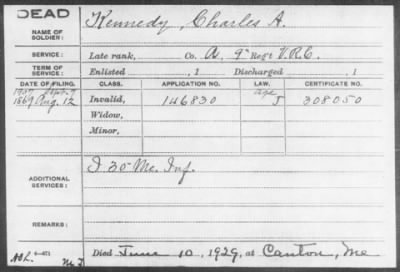 DEAD
NAME OF SOLDIER: Kennedy, Charles A.
SERVICE: Late rank, Co. A, 9" Regt V.R.C.
TERM OF SERVICE: Enlisted , 1 Discharged , 1
DATE OF FILING. CLASS. APPLICATION NO. LAW. CERTIFICATE NO.
1907 Sept. 7 age
1869 Aug. 12 Invalid, 146830 J 308050
Widow,
Minor,
ADDITIONAL SERVICES: D 30 Me. Inf.
REMARKS:
Died June 10, 1929, at Canton, Me